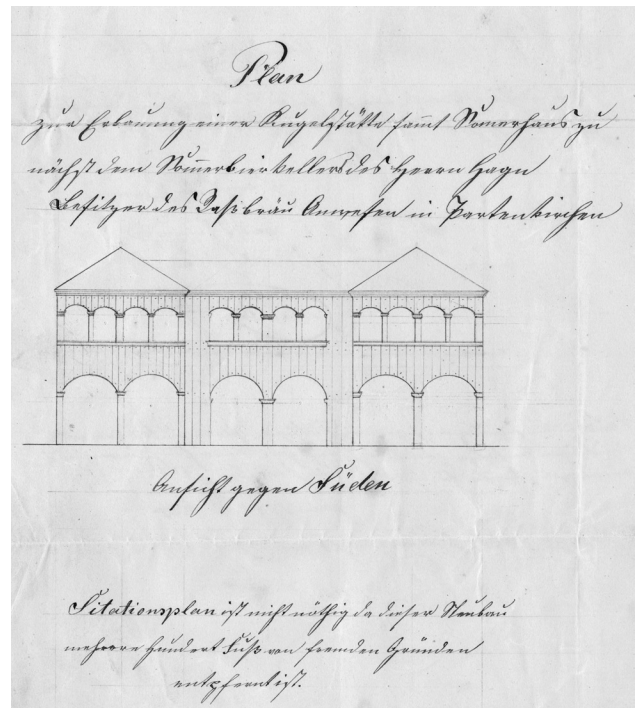 Plan
zur Erbauung einer Kugelstätte sammt Somerhaus zu
nächst dem Sommerbierkellers des Herrn Hagn
Besitzer des Rassbräu Anwesen in Partenkirchen
Ansicht gegen Süden
Sitationsplan ist nicht nöthig da dieser Neubau
mehrere Hundert Fuß von fremden Gründen
entpfernt ist.